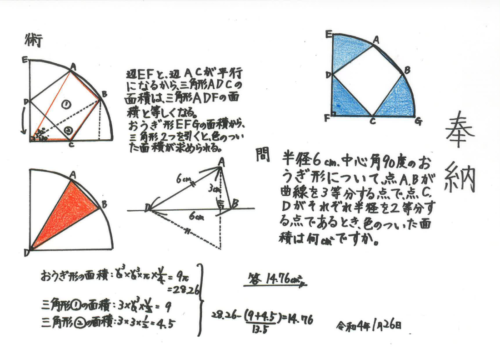 奉納
問
半径6cm、中心角90度のお
うぎ形について、点A,Bが
曲線を3等分する点で、点C,
Dがそれぞれ半径を2等分す
る点であるとき、色のついた面
積は何cm²ですか。
E
A
B
D
F
C
G
術
E
A
D
B
C
①
②
辺EFと、辺ACが平行
になるから、三角形ADC
の面積は、三角形ADFの面
積と等しくなる。
おうぎ形EFGの面積から、
三角形2つを引くと、色のつい
た面積が求められる。
A
B
D
A
6cm
3cm
D
6cm
B
おうぎ形の面積:
=9π
=28.26
三角形①の面積:
=9
三角形②の面積:3×3×½=4.5
答 14.76cm²
28.26-(9+4.5)=14.76
13.5
令和4年1月26日